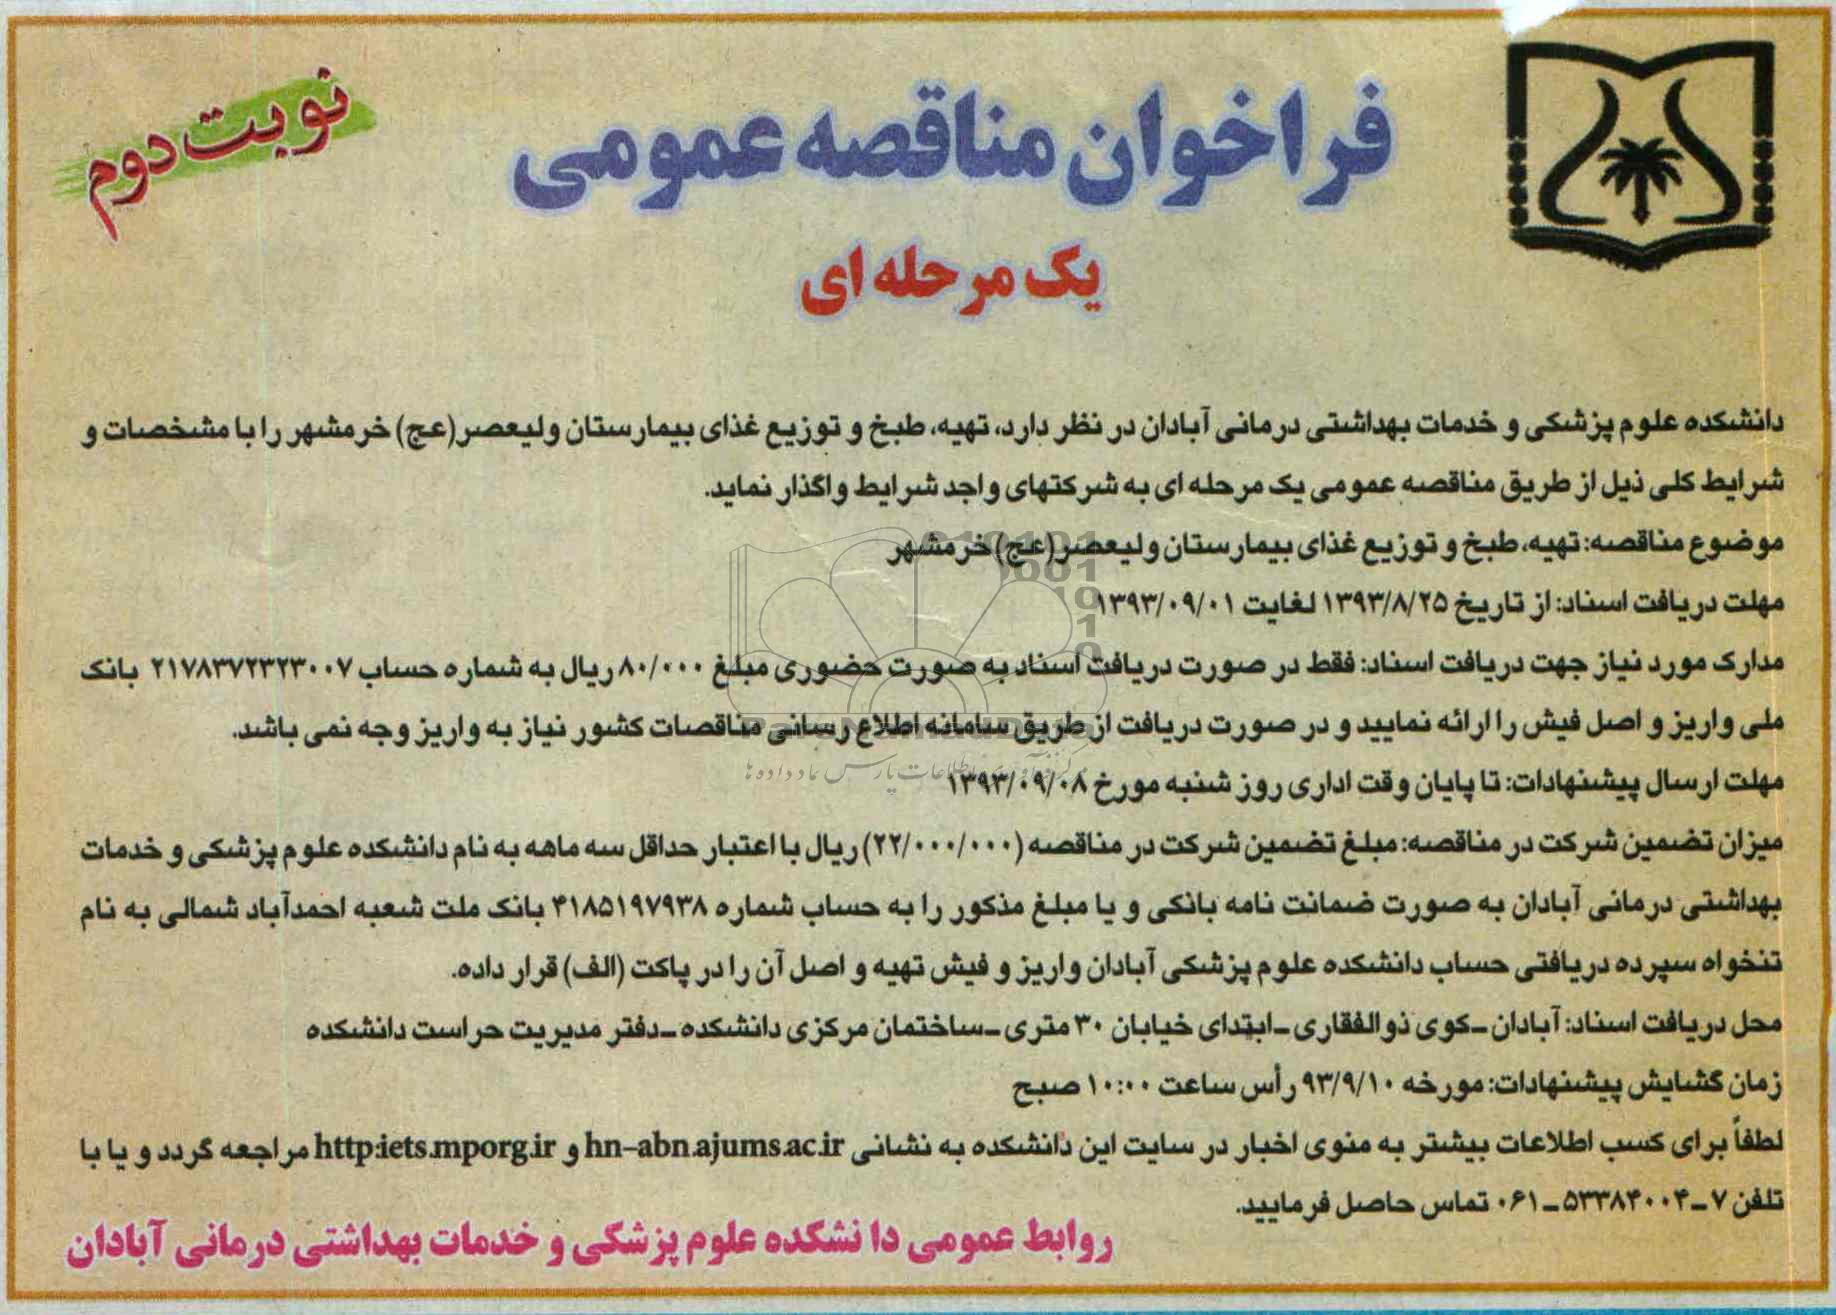 نوبت دوم
فراخوان مناقصه عمومی
یک مرحله ای
دانشکده علوم پزشکی و خدمات بهداشتی درمانی آبادان در نظر دارد، تهیه، طبخ و توزیع غذای بیمارستان ولیعصر(عج) خرمشهر را با مشخصات و
شرایط کلی ذیل از طریق مناقصه عمومی یک مرحله ای به شرکتهای واجد شرایط واگذار نماید.
موضوع مناقصه: تهیه، طبخ و توزیع غذای بیمارستان ولیعصر(عج) خرمشهر
مهلت دریافت اسناد: از تاریخ ۱۳۹۳/۸/۲۵ لغایت ۱۳۹۳/۰۹/۰۱
مدارک مورد نیاز جهت دریافت اسناد: فقط در صورت دریافت اسناد به صورت حضوری مبلغ ۸۰/۰۰۰ ریال به شماره حساب ۲۱۷۸۳۷۲۳۲۳۰۰۷ بانک
ملی واریز و اصل فیش را ارائه نمایید و در صورت دریافت از طریق سامانه اطلاع رسانی مناقصات کشور نیاز به واریز وجه نمی باشد.
مرکز فرآوری اطلاعات پارس نماد داده ها
مهلت ارسال پیشنهادات: تا پایان وقت اداری روز شنبه مورخ ۱۳۹۳/۰۹/۰۸
میزان تضمین شرکت در مناقصه: مبلغ تضمین شرکت در مناقصه (۲۲/۰۰۰/۰۰۰) ریال با اعتبار حداقل سه ماهه به نام دانشکده علوم پزشکی و خدمات
بهداشتی درمانی آبادان به صورت ضمانت نامه بانکی و یا مبلغ مذکور را به حساب شماره ۴۱۸۵۱۹۷۹۳۸ بانک ملت شعبه احمدآباد شمالی به نام
تنخواه سپرده دریافتی حساب دانشکده علوم پزشکی آبادان واریز و فیش تهیه و اصل آن را در پاکت (الف) قرار داده.
محل دریافت اسناد: آبادان -کوی ذوالفقاری -ابتدای خیابان ۳۰ متری -ساختمان مرکزی دانشکده -دفتر مدیریت حراست دانشکده
زمان گشایش پیشنهادات: مورخه ۹۳/۹/۱۰ رأس ساعت ۱۰:۰۰ صبح
لطفاً برای کسب اطلاعات بیشتر به منوی اخبار در سایت این دانشکده به نشانی hn-abn.ajums.ac.ir و http:iets.mporg.ir مراجعه گردد و یا با
تلفن ۷-۰۶۱-۵۳۳۸۴۰۰۴ تماس حاصل فرمایید.
روابط عمومی دا نشکده علوم پزشکی و خدمات بهداشتی درمانی آبادان